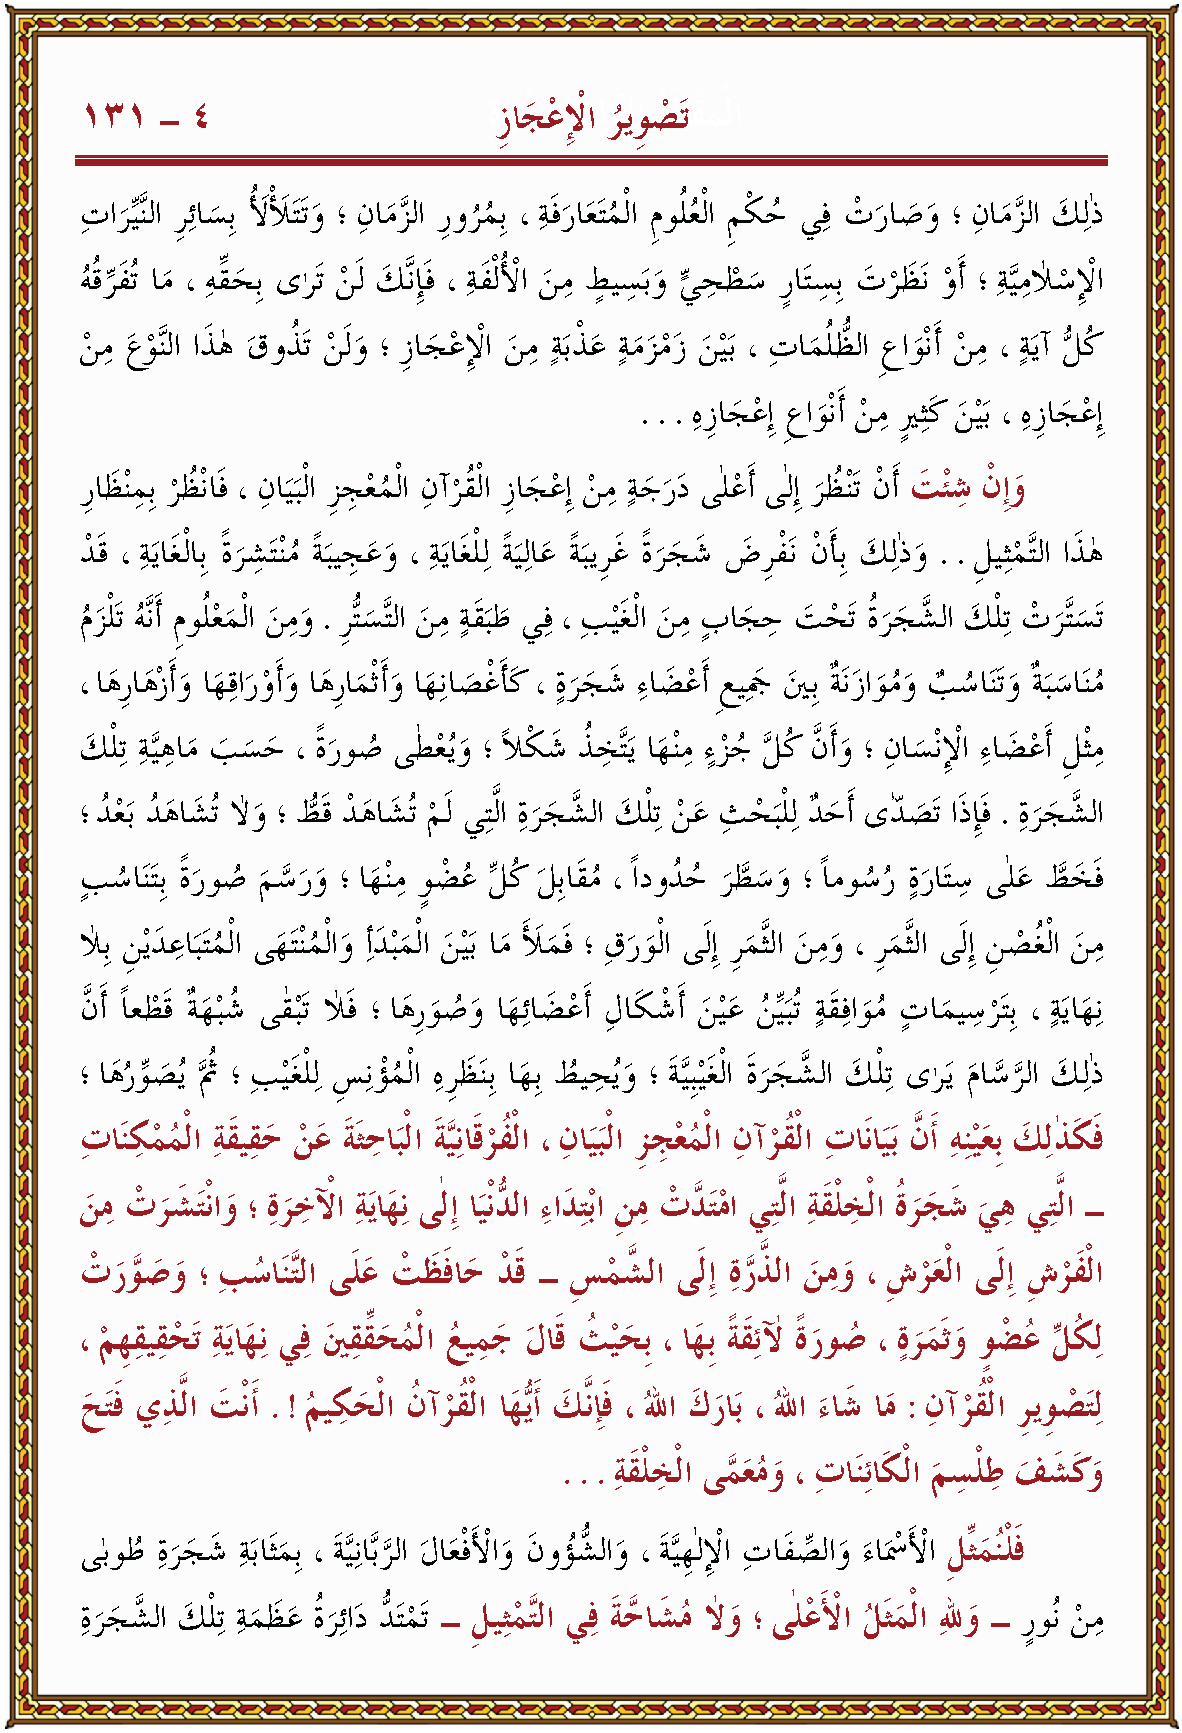 تَصْوِيرُ الْإِعْجَازِ
٤ – ١٣١
ذٰلِكَ الزَّمَانِ ؛ وَصَارَتْ فِي حُكْمِ الْعُلُومِ الْمُتَعَارَفَةِ ، بِمُرُورِ الزَّمَانِ ؛ وَتَتَلَأْلَأُ بِسَائِرِ النَّيِّرَاتِ
الْإِسْلَامِيَّةِ ؛ أَوْ نَظَرْتَ بِسِتَارٍ سَطْحِيٍّ وَبَسِيطٍ مِنَ الْأُلْفَةِ ، فَإِنَّكَ لَنْ تَرٰى بِحَقِّهِ ، مَا تُفَرِّقُهُ
كُلُّ آيَةٍ ، مِنْ أَنْوَاعِ الظُّلُمَاتِ ، بَيْنَ زَمْزَمَةٍ عَذْبَةٍ مِنَ الْإِعْجَازِ ؛ وَلَنْ تَذُوقَ هٰذَا النَّوْعَ مِنْ
إِعْجَازِهِ ، بَيْنَ كَثِيرٍ مِنْ أَنْوَاعِ إِعْجَازِهِ . . .
وَإِنْ شِئْتَ أَنْ تَنْظُرَ إِلٰى أَعْلٰى دَرَجَةٍ مِنْ إِعْجَازِ الْقُرْآنِ الْمُعْجِزِ الْبَيَانِ ، فَانْظُرْ بِمِنْظَارِ
هٰذَا التَّمْثِيلِ . . وَذٰلِكَ بِأَنْ نَفْرِضَ شَجَرَةً غَرِيبَةً عَالِيَةً لِلْغَايَةِ ، وَعَجِيبَةً مُنْتَشِرَةً بِالْغَايَةِ ، قَدْ
تَسَتَّرَتْ تِلْكَ الشَّجَرَةُ تَحْتَ حِجَابٍ مِنَ الْغَيْبِ ، فِي طَبَقَةٍ مِنَ التَّسَتُّرِ . وَمِنَ الْمَعْلُومِ أَنَّهُ تَلْزَمُ
مُنَاسَبَةٌ وَتَنَاسُبٌ وَمُوَازَنَةٌ بِينَ جَمِيعِ أَعْضَاءِ شَجَرَةٍ ، كَأَغْصَانِهَا وَأَثْمَارِهَا وَأَوْرَاقِهَا وَأَزْهَارِهَا ،
مِثْلِ أَعْضَاءِ الْإِنْسَانِ ؛ وَأَنَّ كُلَّ جُزْءٍ مِنْهَا يَتَّخِذُ شَكْلاً ؛ وَيُعْطٰى صُورَةً ، حَسَبَ مَاهِيَّةِ تِلْكَ
الشَّجَرَةِ . فَإِذَا تَصَدّٰى أَحَدٌ لِلْبَحْثِ عَنْ تِلْكَ الشَّجَرَةِ الَّتِي لَمْ تُشَاهَدْ قَطُّ ؛ وَلَا تُشَاهَدُ بَعْدُ ؛
فَخَطَّ عَلٰى سِتَارَةٍ رُسُوماً ؛ وَسَطَّرَ حُدُوداً ، مُقَابِلَ كُلِّ عُضْوٍ مِنْهَا ؛ وَرَسَّمَ صُورَةً بِتَنَاسُبٍ
مِنَ الْغُصْنِ إِلَى الثَّمَرِ ، وَمِنَ الثَّمَرِ إِلَى الْوَرَقِ ؛ فَمَلَأَ مَا بَيْنَ الْمَبْدَأِ وَالْمُنْتَهَى الْمُتَبَاعِدَيْنِ بِلَا
نِهَايَةٍ ، بِتَرْسِيمَاتٍ مُوَافِقَةٍ تُبَيِّنُ عَيْنَ أَشْكَالِ أَعْضَائِهَا وَصُوَرِهَا ؛ فَلَا تَبْقٰى شُبْهَةٌ قَطْعاً أَنَّ
ذٰلِكَ الرَّسَّامَ يَرٰى تِلْكَ الشَّجَرَةَ الْغَيْبِيَّةَ ؛ وَيُحِيطُ بِهَا بِنَظَرِهِ الْمُؤْنِسِ لِلْغَيْبِ ؛ ثُمَّ يُصَوِّرُهَا ؛
فَكَذٰلِكَ بِعَيْنِهِ أَنَّ بَيَانَاتِ الْقُرْآنِ الْمُعْجِزِ الْبَيَانِ ، الْفُرْقَانِيَّةَ الْبَاحِثَةَ عَنْ حَقِيقَةِ الْمُمْكِنَاتِ
– الَّتِي هِيَ شَجَرَةُ الْخِلْقَةِ الَّتِي امْتَدَّتْ مِنِ ابْتِدَاءِ الدُّنْيَا إِلٰى نِهَايَةِ الْآخِرَةِ ؛ وَانْتَشَرَتْ مِنَ
الْفَرْشِ إِلَى الْعَرْشِ ، وَمِنَ الذَّرَّةِ إِلَى الشَّمْسِ – قَدْ حَافَظَتْ عَلَى التَّنَاسُبِ ؛ وَصَوَّرَتْ
لِكُلِّ عُضْوٍ وَثَمَرَةٍ ، صُورَةً لَائِقَةً بِهَا ، بِحَيْثُ قَالَ جَمِيعُ الْمُحَقِّقِينَ فِي نِهَايَةِ تَحْقِيقِهِمْ ،
لِتَصْوِيرِ الْقُرْآنِ : مَا شَاءَ اللهُ ، بَارَكَ اللهُ ، فَإِنَّكَ أَيُّهَا الْقُرْآنُ الْحَكِيمُ ! . أَنْتَ الَّذِي فَتَحَ
وَكَشَفَ طِلْسِمَ الْكَائِنَاتِ ، وَمُعَمَّى الْخِلْقَةِ . . .
فَلْنُمَثِّلِ الْأَسْمَاءَ وَالصِّفَاتِ الْإِلٰهِيَّةَ ، وَالشُّؤُونَ وَالْأَفْعَالَ الرَّبَّانِيَّةَ ، بِمَثَابَةِ شَجَرَةِ طُوبٰى
مِنْ نُورٍ – وَلِلهِ الْمَثَلُ الْأَعْلٰى ؛ وَلَا مُشَاحَّةَ فِي التَّمْثِيلِ – تَمْتَدُّ دَائِرَةُ عَظَمَةِ تِلْكَ الشَّجَرَةِ